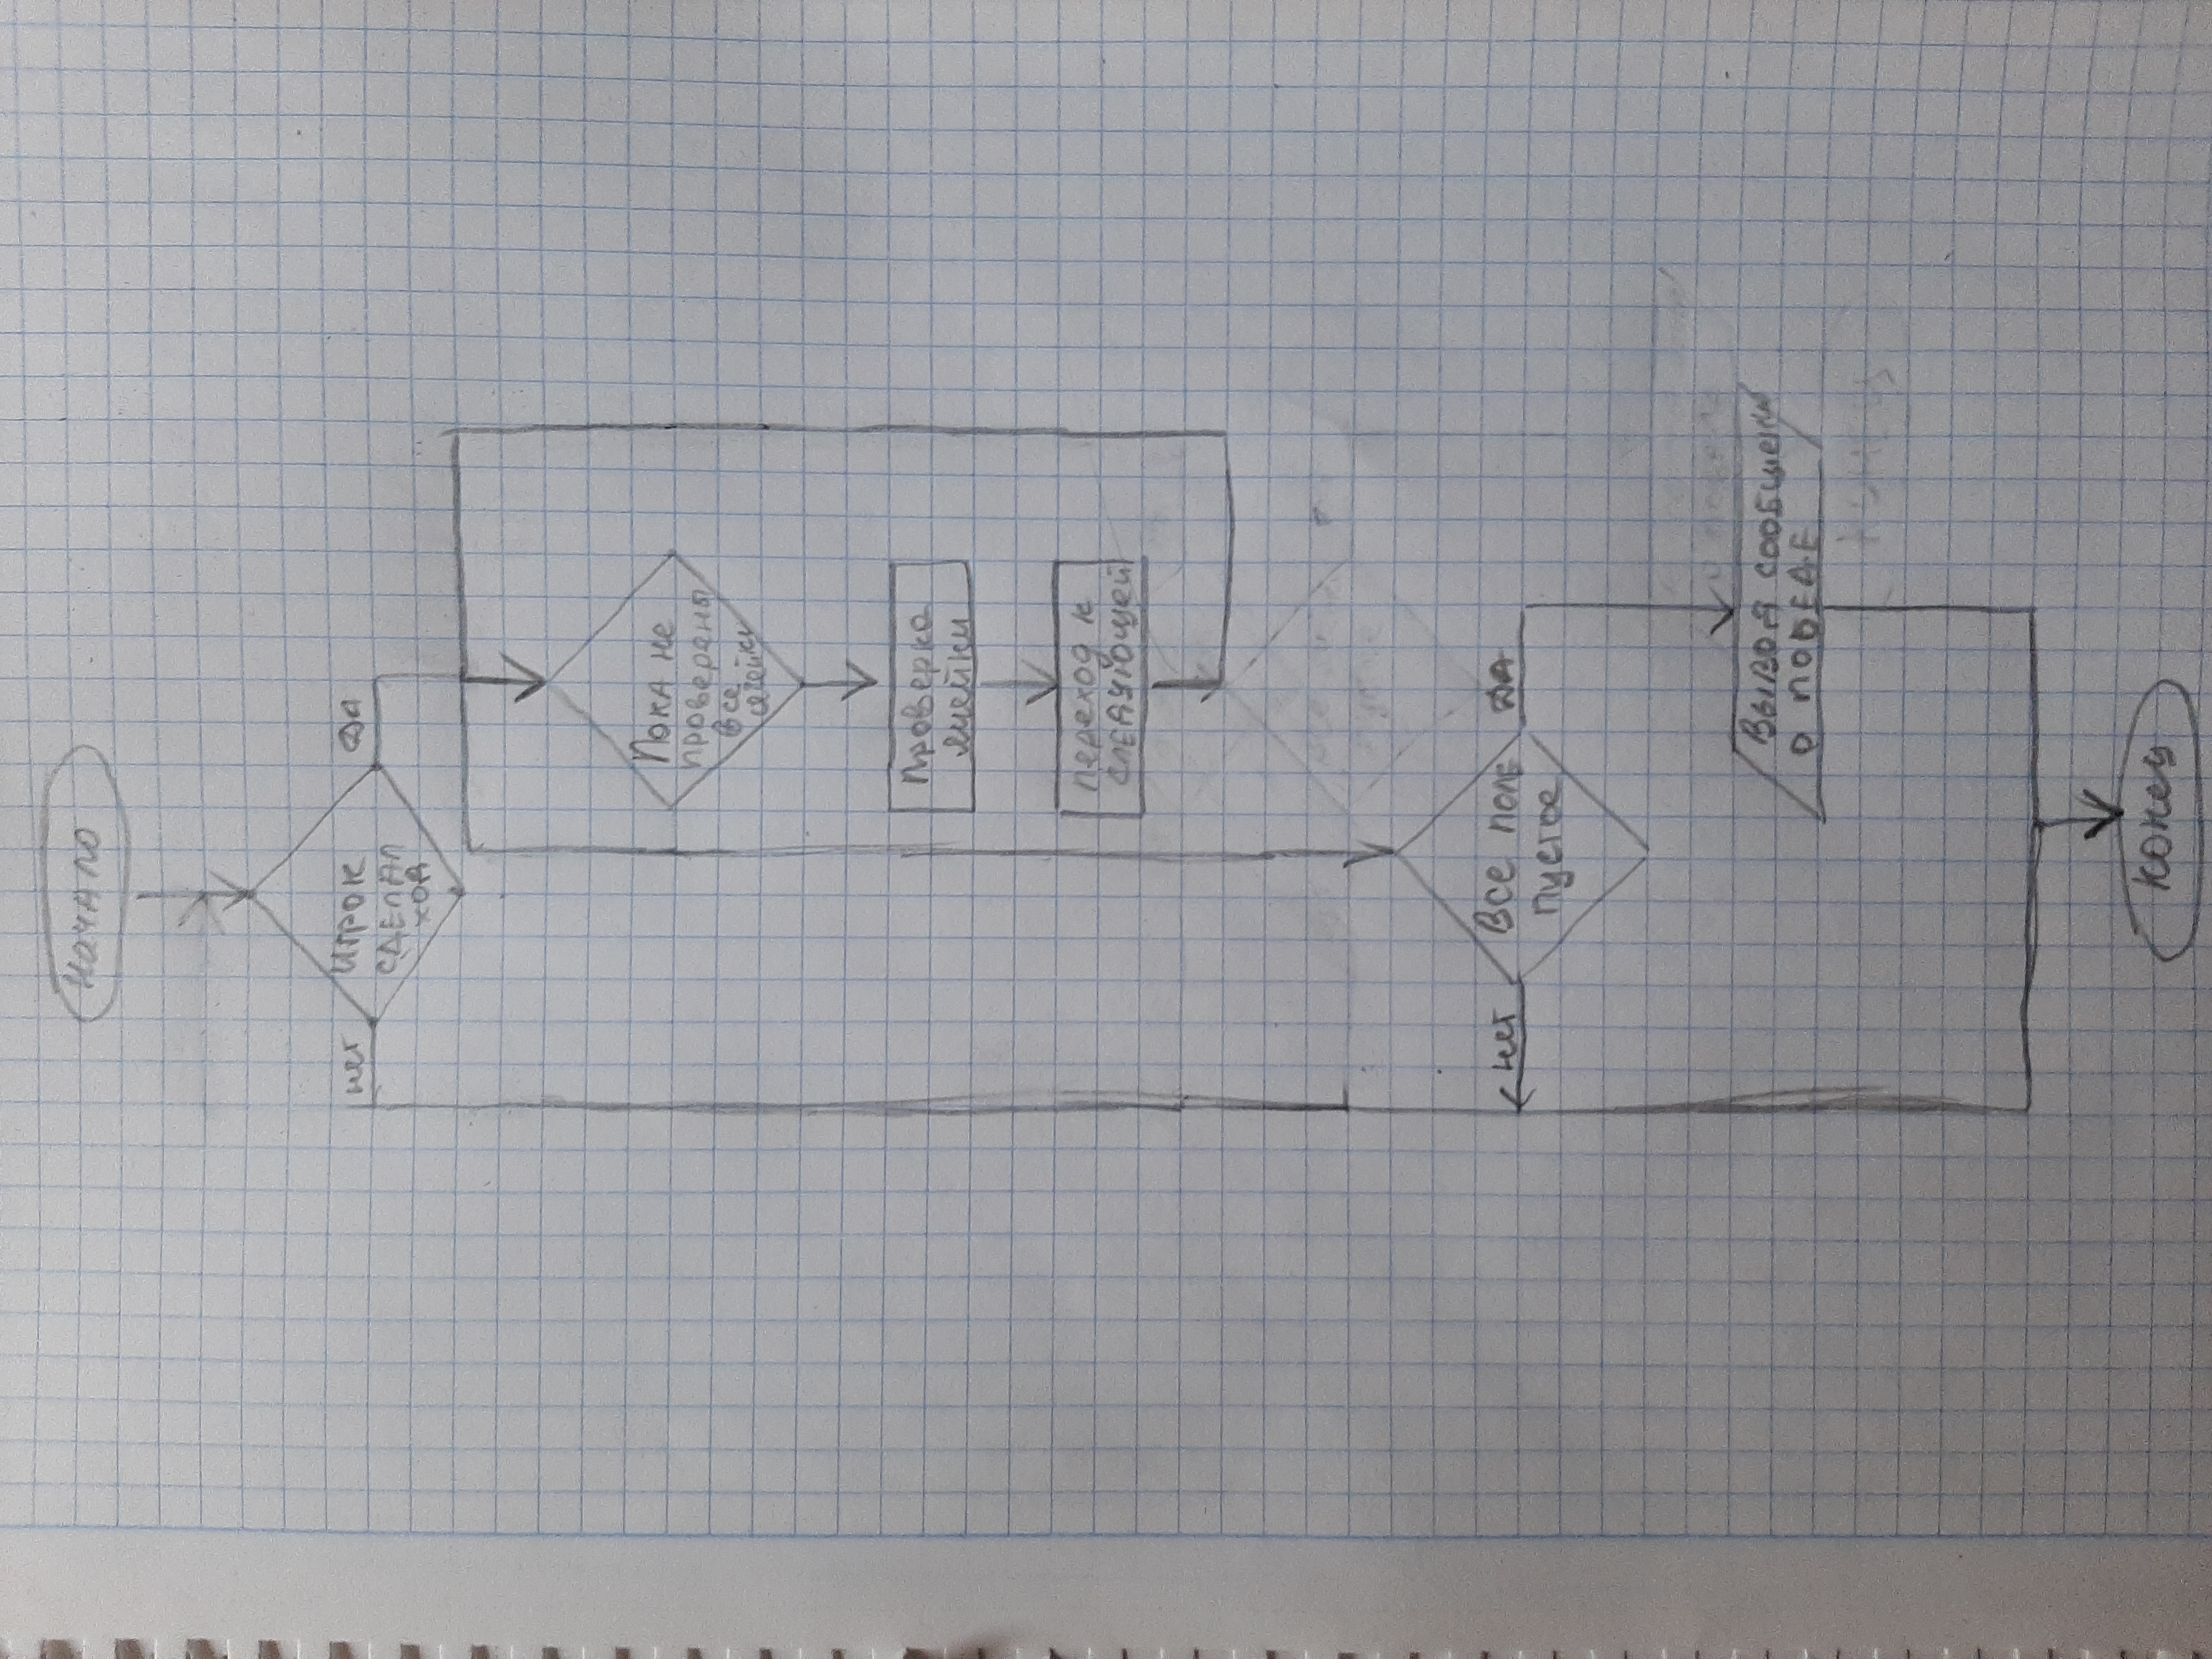 Начало
нет
да
Игрок
сделал
ход
Пока не
проверены
все
ячейки
Проверка
ячейки
переход к
следующей
нет
да
Все поле
пустое
Вывод сообщения
о победе
конец